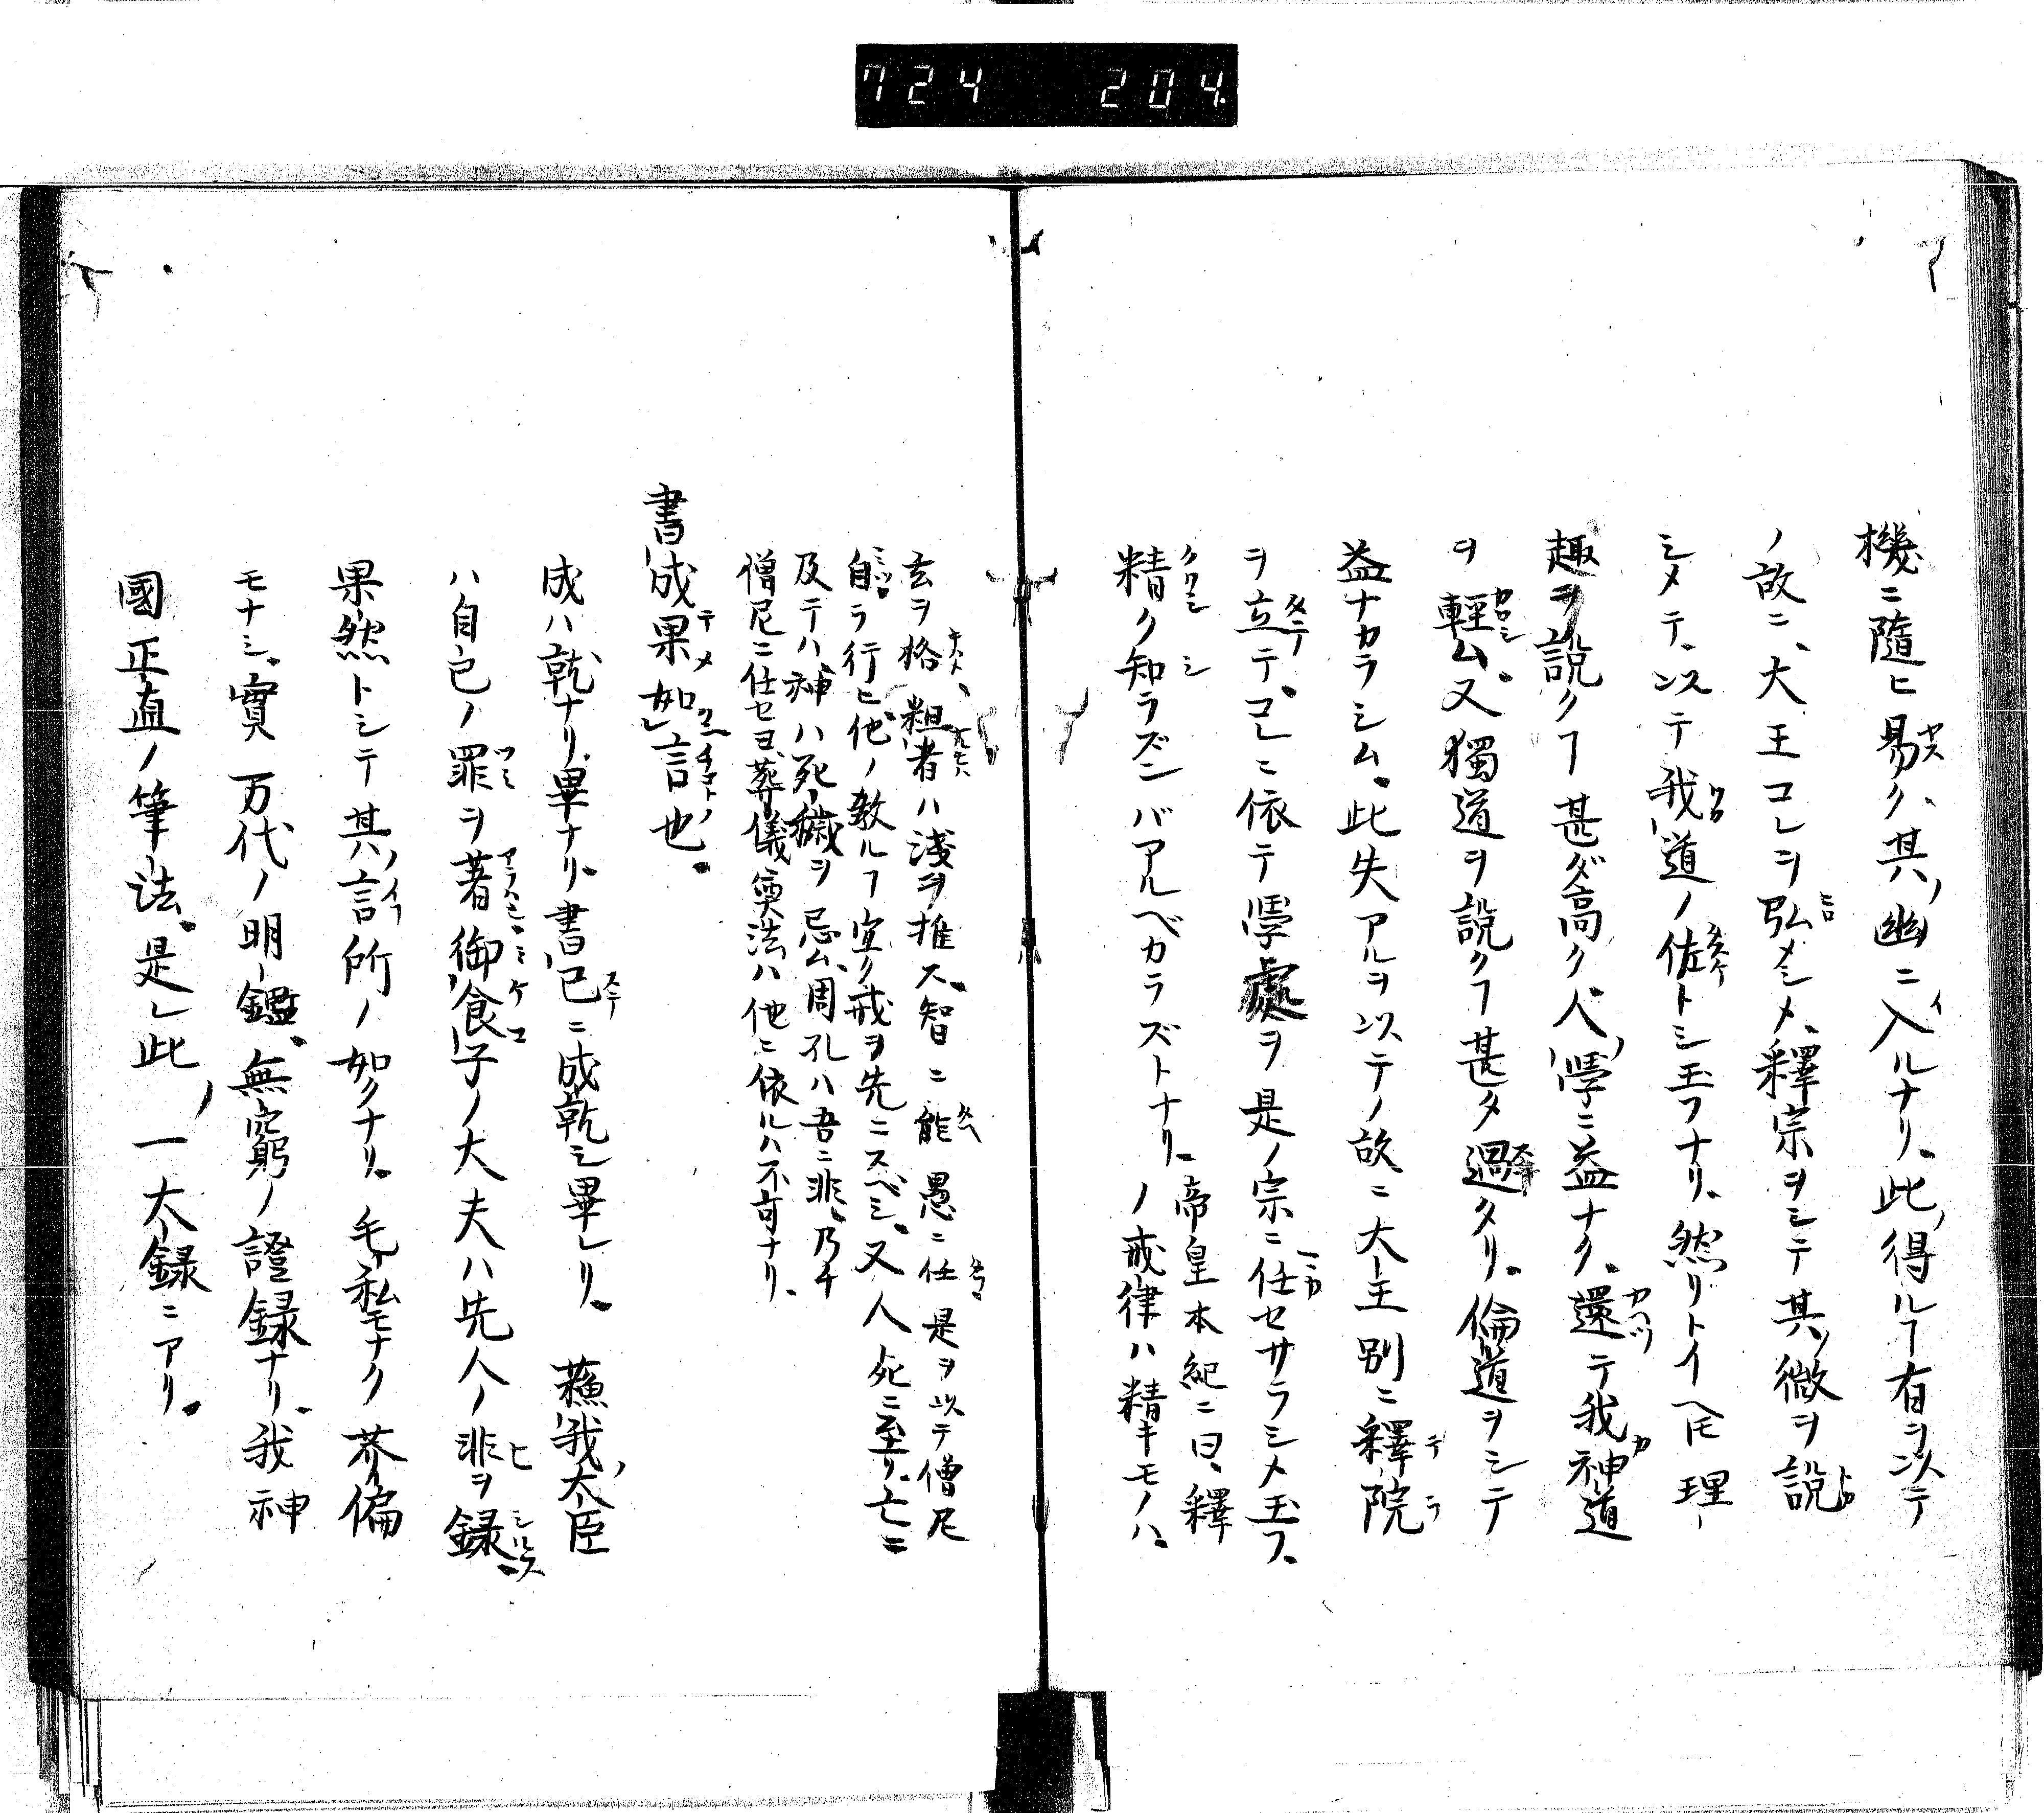 724 204.
機ニ隨ヒ易ク、其ノ幽ニ入ルナリ。此ノ得ルヿ有ヲ以テ
ノ故ニ、大王コレヲ弘メシメ、釋宗ヲシテ其ノ微ヲ説
シメテ、以テ我道ノ佐トシ玉フナリ。然リトイヘ𪜈理
趣ヲ説クヿ甚ダ高ク、人學ニ益ナク。還テ我神道
ヲ輕ム。又獨道ヲ説クヿ甚タ過タリ。倫道ヲシテ
益ナカラシム。此失アルヲ以テノ故ニ大王別ニ釋院
ヲ立テ。コレニ依テ學處ヲ是ノ宗ニ任セサラシメ玉フ。
精ク知ラズンバアルベカラズトナリ。帝皇本紀ニ曰、釋
ノ戒律ハ精キモノハ、
玄ヲ格、粗者ハ淺ヲ推ス。智ニ能愚ニ任是ヲ以テ僧尼
自ラ行ヒ他ノ教ルヿ宜ク戒ヲ先ニスベシ。又人死ニ至リ、亡ニ
及テハ、神ハ死穢ヲ忌ム、周孔ハ吾ニ非、乃チ
僧尼ニ仕セヨ、葬儀奠法ハ他ニ依ルハ不可ナリ。
書成果如レ言也。
成ハ乾ナリ。畢ナリ。書已ニ成乾シ畢レリ。蘓我ノ大臣
ハ自已ノ罪ヲ著御食子ノ大夫ハ先人ノ非ヲ録
果然トシテ其ノ言所ノ如クナリ。毛私モナク芥偏
モナシ。實万代ノ明鑑。無窮ノ證録ナリ。我神
國正直ノ筆法。是レ此ノ一大録ニアリ。